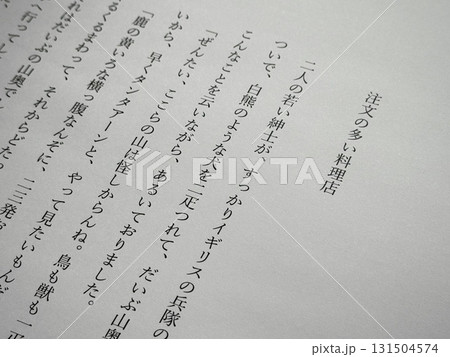 注文の多い料理店
二人の若い紳士が、すっかりイギリスの兵隊の
ついで、白熊のような犬を二疋つれて、だいぶ山奥
こんなことを云いながら、あるいておりました。
「ぜんたい、ここらの山は怪しからんね。鳥も獣も一疋
いから、早くタンタアーンと、やって見たいもんだ
「鹿の黄いろな横っ腹なんぞに、二三発お
るくるまわって、それからどたっ
れはだいぶの山奥で
へ行ってし
pixta
131504574